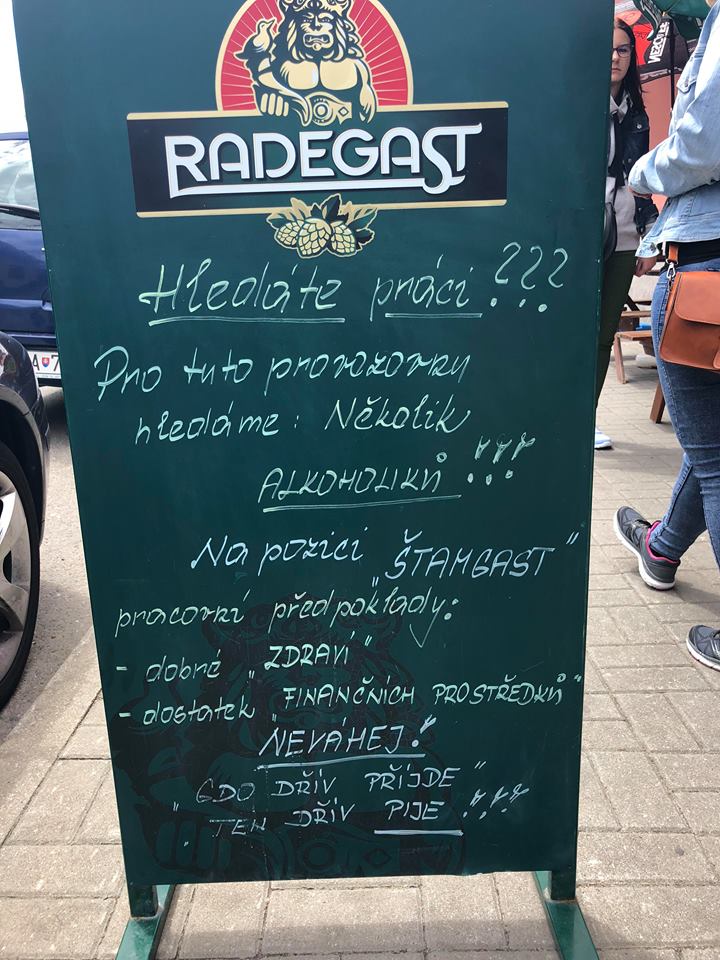 RADEGAST
Hledáte práci ???
Pro tuto provozovnu
hledáme: Několik
ALKOHOLIKŮ !!!
Na pozici „ŠTAMGAST"
pracovní předpoklady:
- dobré „ZDRAVÍ"
- dostatek „FINANČNÍCH PROSTŘEDKŮ"
„NEVÁHEJ!"
GDO DŘÍV PŘIJDE"
„TEN DŘÍV PIJE !!!